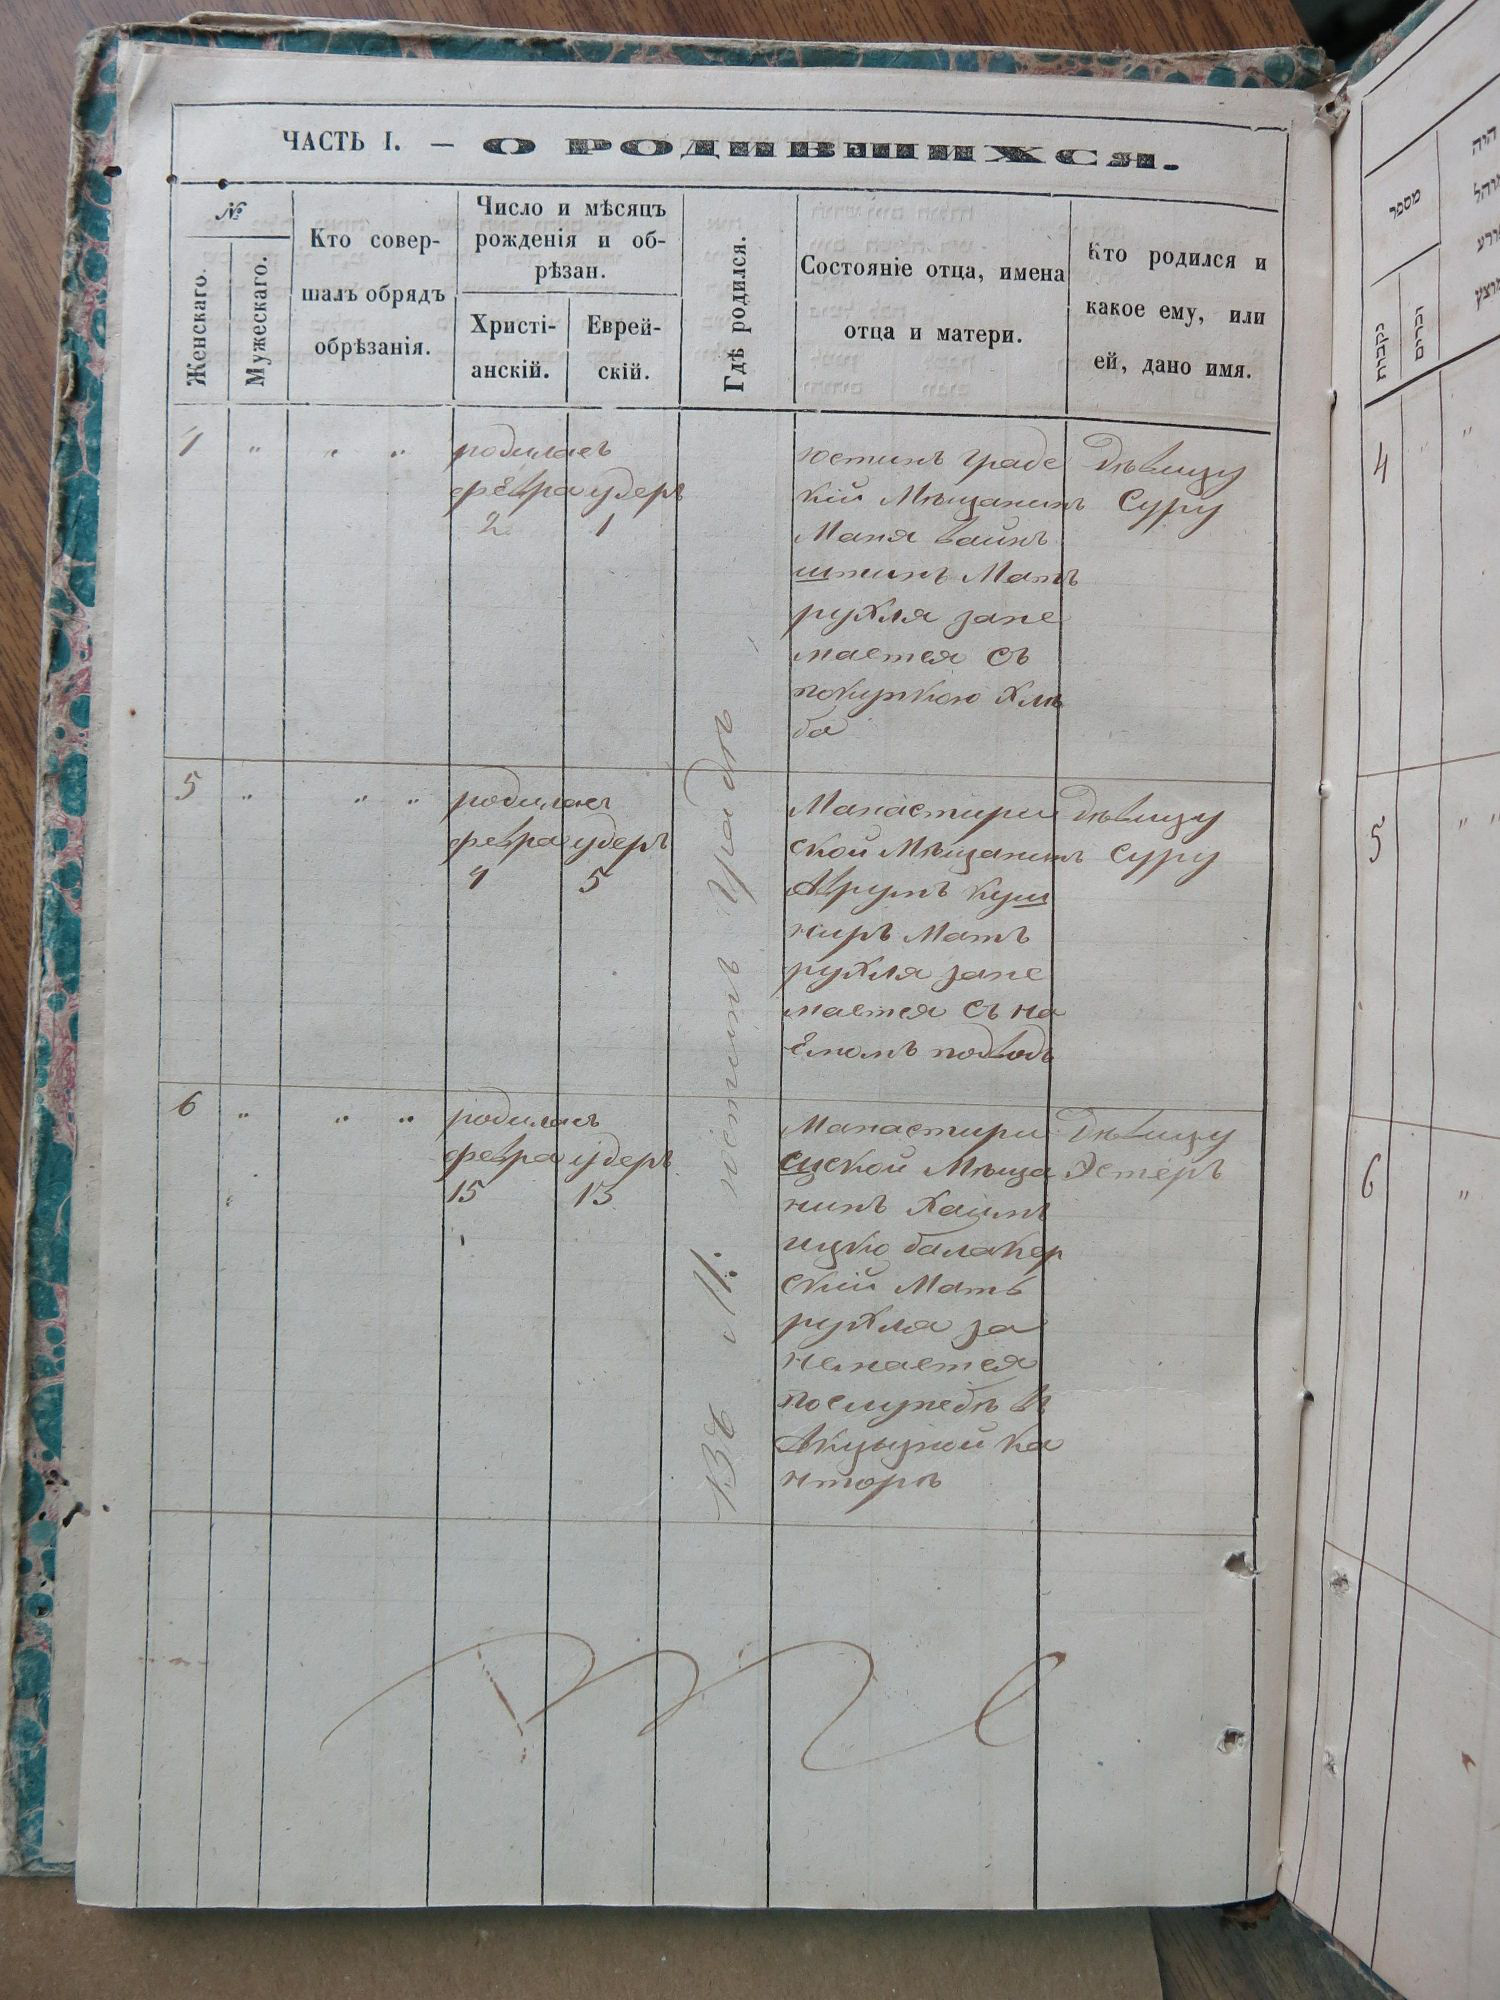 ЧАСТЬ I. — О РОДИВШИХСЯ.
№
Женскаго.
Мужескаго.
Кто совер-
шалъ обрядъ
обрѣзанія.
Число и мѣсяцъ
рожденія и об-
рѣзан.
Христі-
анскій.
Еврей-
скій.
Гдѣ родился.
Состояніе отца, имена
отца и матери.
Кто родился и
какое ему, или
ей, дано имя.
4 " " "
родилась
февра удеръ
2 1
юстинъ граде
кій Мѣщанинъ
Маня Вайнъ
штинъ Мать
рухля зане
мается съ
покупкою хлѣ
ба
Дѣвицу
Суру
5 " " "
родилась
февра удеръ
4 5
Манастири
ской Мѣщанинъ
Аврумъ куш
ниръ Мать
рухля зане
мается съ на
ёмомъ подводъ
Дѣвицу
Суру
6 " " "
родилась
февра удеръ
15 13
Манастири
щской Мѣща
нинъ Хаимъ
ицко балакер
скій Мать
рухля за
немается
послужбѣ въ
Акцызной ка
нторѣ
Дѣвицу
Эстеръ
Въ М. юстинъ градѣ
מספר
נקבות
זכרים
היה
מוהל
4 " "
5 " "
6 "